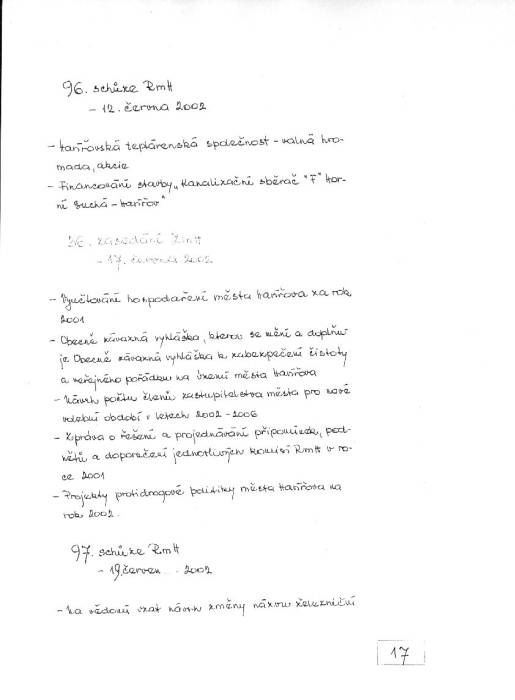 96. schůze RmH
- 12. června 2002
- Havířovská teplárenská společnost - valná hro-
mada, akcie
- Financování stavby „Kanalizační sběrač "F" Hor-
ní Suchá - Havířov"
26. zasedání ZmH
- 17. června 2002
- Vyúčtování hospodaření města Havířova za rok
2001
- Obecně závazná vyhláška, kterou se mění a doplňu-
je Obecně závazná vyhláška k zabezpečení čistoty
a veřejného pořádku na území města Havířova
- Návrh počtu členů zastupitelstva města pro nové
volební období v letech 2002 - 2006
- Zpráva o řešení a projednávání připomínek, pod-
nětů a doporučení jednotlivých komisí RmH v ro-
ce 2001
- Projekty protidrogové politiky města Havířova na
rok 2002.
97. schůze RmH
- 19. červen 2002
- Na vědomí vzat návrh změny názvu železniční
17